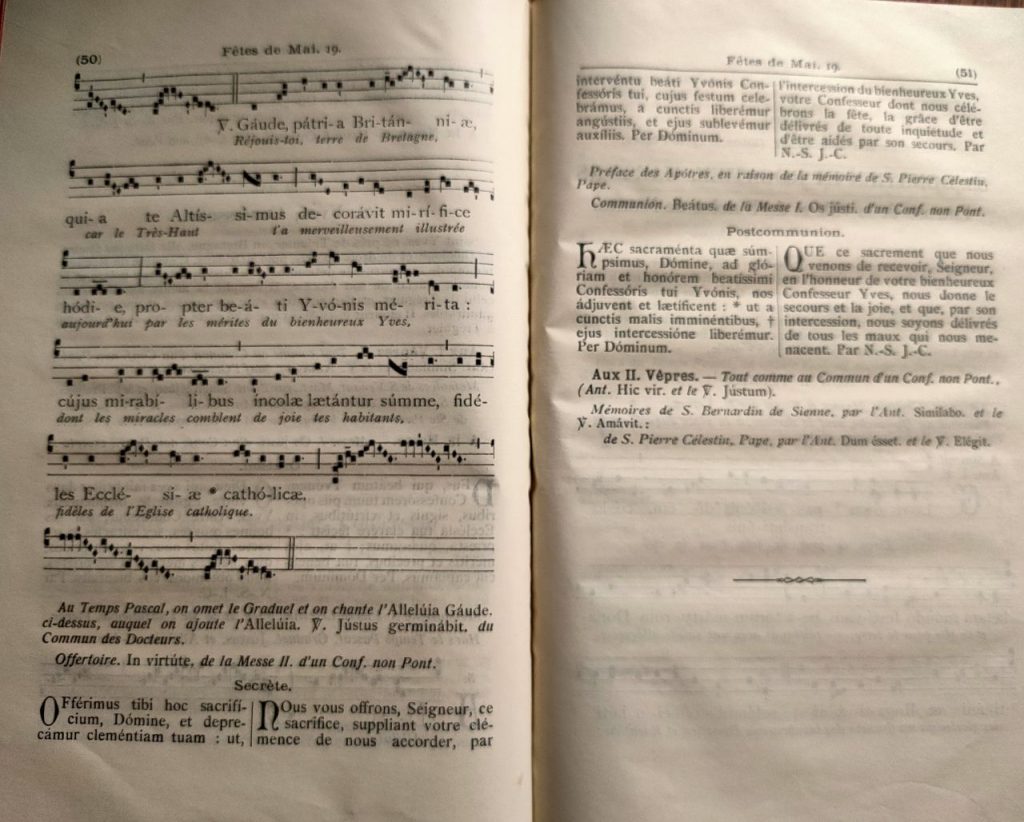 (50)
Fêtes de Mai. 19.
℣. Gáude, pátri-a Bri-tán- ni-æ,
Réjouis-toi, terre de Bretagne,
qui- a te Altís- si-mus de- corávit mi-rí-fi-ce
car le Très-Haut t'a merveilleusement illustrée
hódi- e, pro-pter be-á- ti Y-vó-nis mé- ri-ta :
aujourd'hui par les mérites du bienheureux Yves,
cújus mi-rabí- li-bus incolæ lætántur súmme, fidé-
dont les miracles comblent de joie tes habitants,
les Ecclé- si-æ * cathó-licæ.
fidèles de l'Eglise catholique.
Au Temps Pascal, on omet le Graduel et on chante l'Allelúia Gáude.
ci-dessus, auquel on ajoute l'Allelúia. ℣. Jústus germinábit. du
Commun des Docteurs.
Offertoire. In virtúte, de la Messe II. d'un Conf. non Pont.
Secrète.
OFférimus tibi hoc sacrifí-
cium, Dómine, et depre-
cámur cleméntiam tuam : ut,
NOus vous offrons, Seigneur, ce
sacrifice, suppliant votre clé-
mence de nous accorder, par
Fêtes de Mai. 19.
(51)
intervéntu beáti Yvónis Con-
fessóris tui, cujus festum cele-
brámus, a cunctis liberémur
angústiis, et ejus sublevémur
auxíliis. Per Dóminum.
l'intercession du bienheureux Yves,
votre Confesseur dont nous célé-
brons la fête, la grâce d'être
délivrés de toute inquiétude et
d'être aidés par son secours. Par
N.-S. J.-C.
Préface des Apôtres, en raison de la mémoire de S. Pierre Célestin,
Pape.
Communion. Beátus. de la Messe I. Os jústi. d'un Conf. non Pont.
Postcommunion.
HÆC sacraménta quæ súm-
psimus, Dómine, ad gló-
riam et honórem beatíssimi
Confessóris tui Yvónis, nos
ádjuvent et lætíficent : * ut a
cunctis malis imminéntibus, †
ejus intercessióne liberémur.
Per Dóminum.
QUE ce sacrement que nous
venons de recevoir, Seigneur,
en l'honneur de votre bienheureux
Confesseur Yves, nous donne le
secours et la joie, et que, par son
intercession, nous soyons délivrés
de tous les maux qui nous me-
nacent. Par N.-S. J.-C.
Aux II. Vêpres. — Tout comme au Commun d'un Conf. non Pont.,
(Ant. Hic vir. et le ℣. Jústum).
Mémoires de S. Bernardin de Sienne, par l'Ant. Similabo. et le
℣. Amávit. :
de S. Pierre Célestin, Pape, par l'Ant. Dum ésset. et le ℣. Elégit.